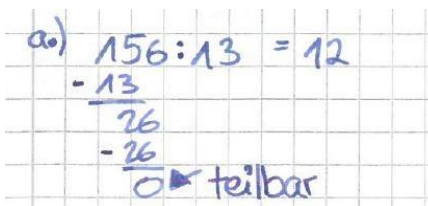 a.) 156:13 = 12
- 13
26
- 26
0 ► teilbar